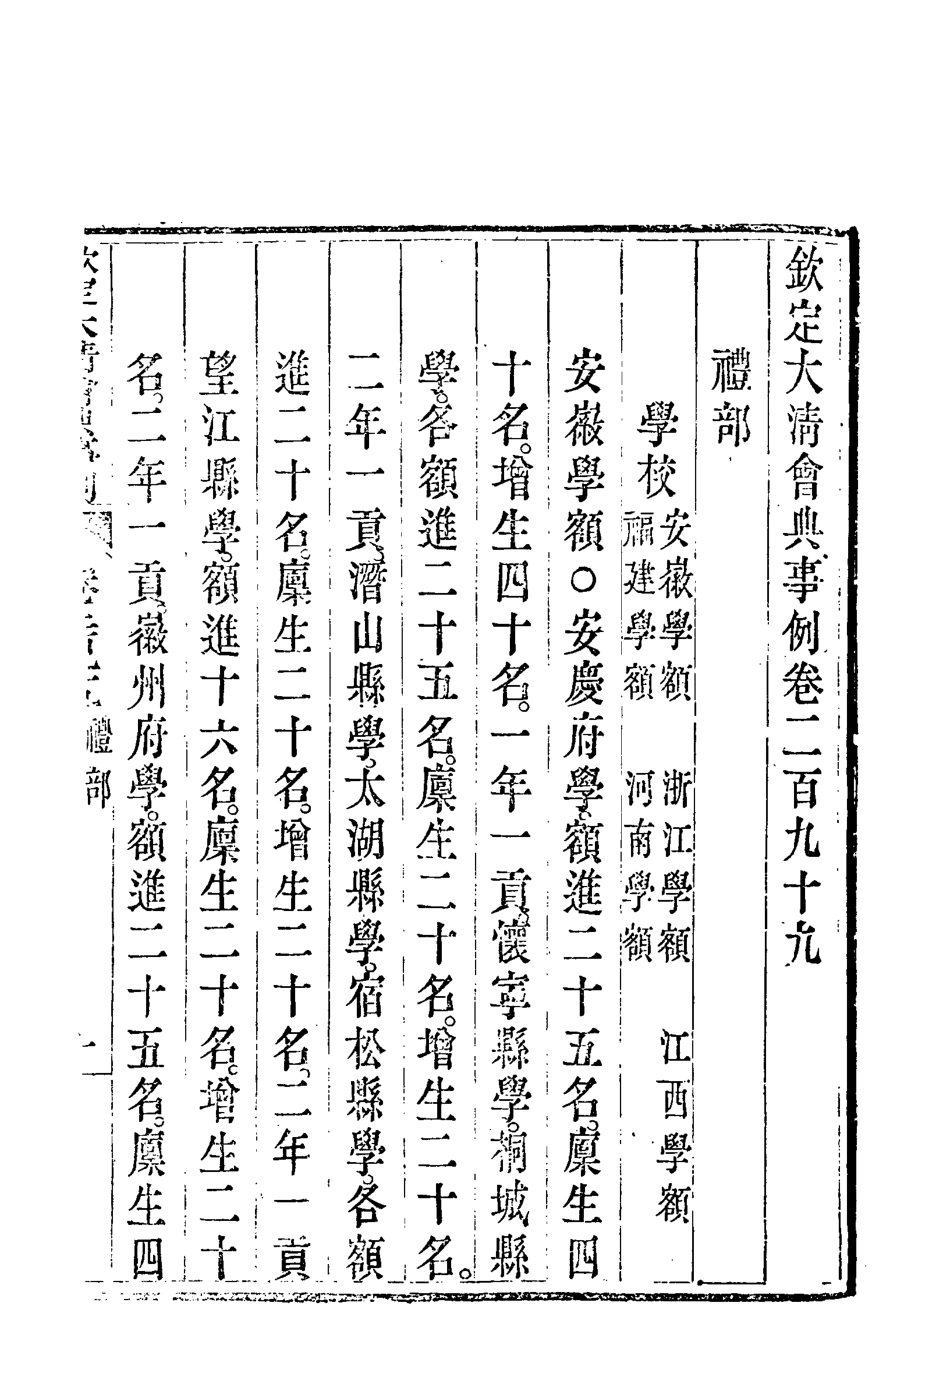 欽定大清會典事例卷二百九十九
禮部
學校
安徽學額　浙江學額　江西學額
福建學額　河南學額
安徽學額○安慶府學。額進二十五名。廩生四
十名。增生四十名。一年一貢。懷寧縣學。桐城縣
學。各額進二十五名。廩生二十名。增生二十名。
二年一貢。潛山縣學。太湖縣學。宿松縣學。各額
進二十名。廩生二十名。增生二十名。二年一貢
望江縣學。額進十六名。廩生二十名。增生二十
名。二年一貢。徽州府學。額進二十五名。廩生四
禮部